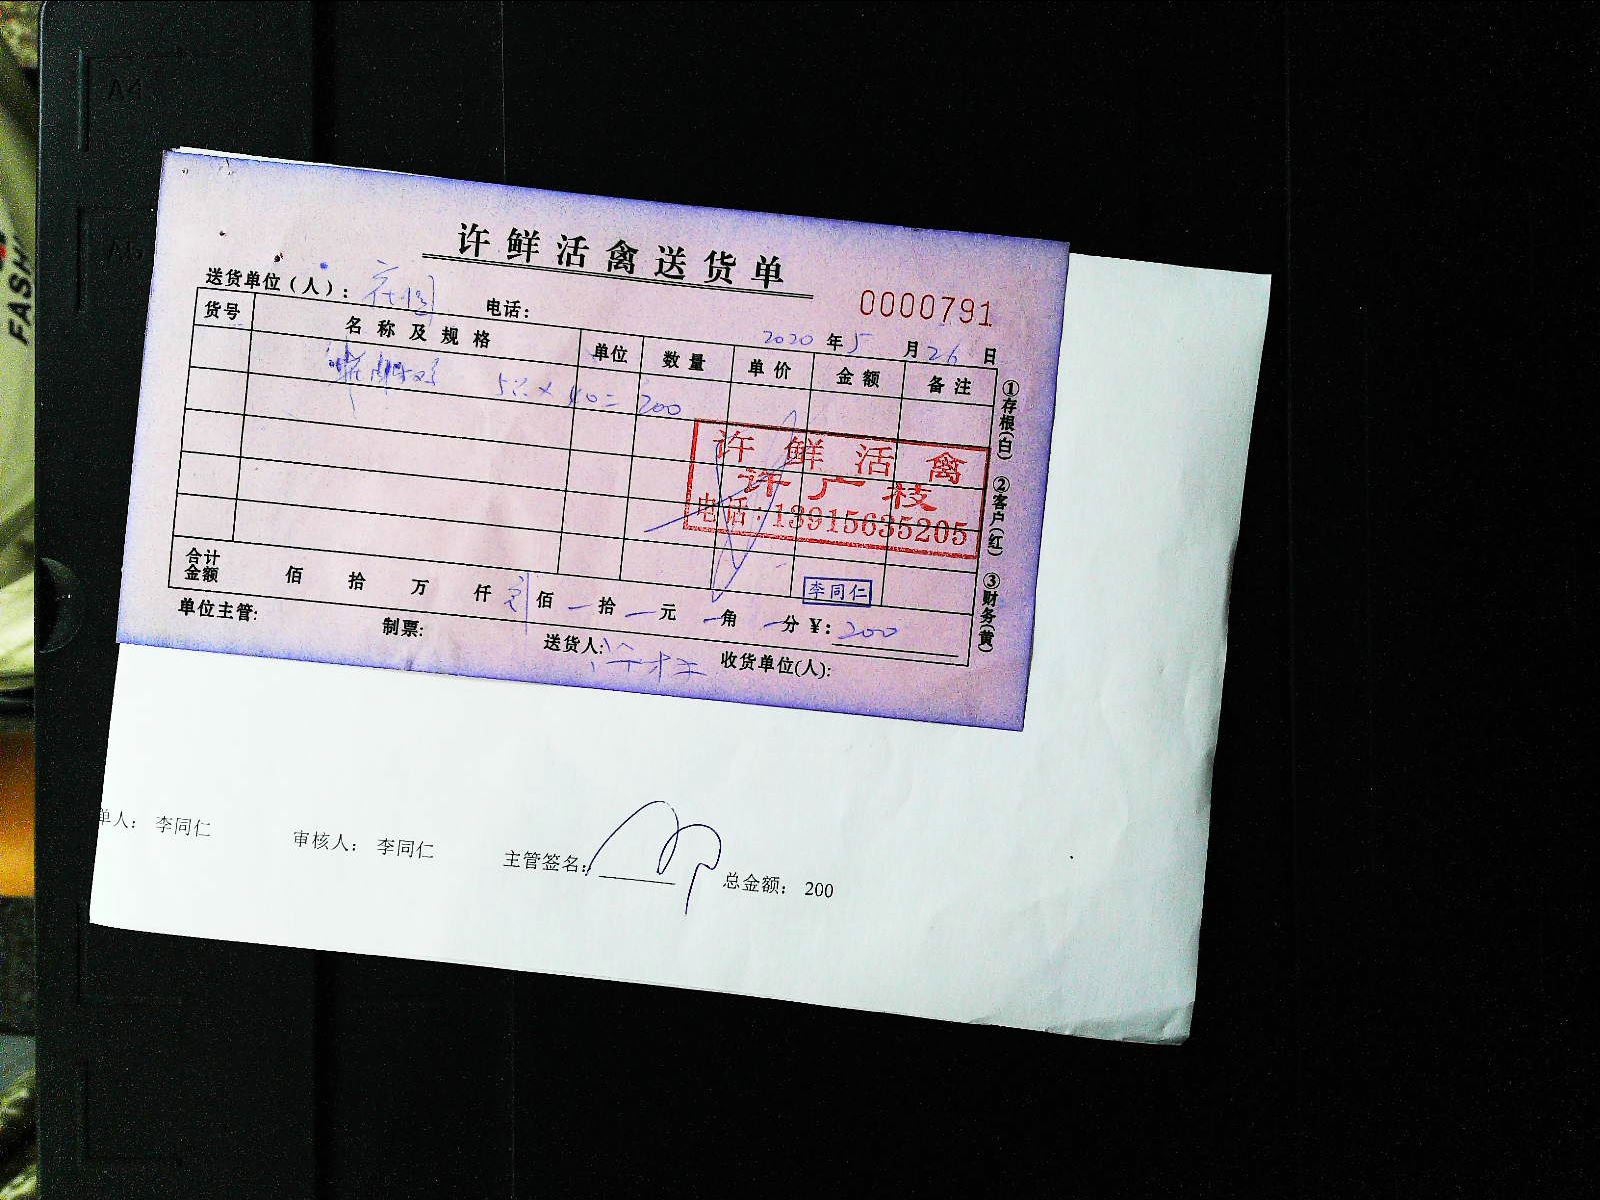 A4
A5
FASH
许鲜活禽送货单
送货单位（人）：
电话：
0000791
2020 年 5 月 26 日
货号 名称及规格 单位 数量 单价 金额 备注
5只 x 40 = 200
许鲜活禽
许广枝
电话：13915635205
李同仁
合计金额 佰 拾 万 仟 佰 拾 元 角 分 ¥：200
单位主管： 制票： 送货人： 收货单位(人)：
①存根(白) ②客户(红) ③财务(黄)
单人： 李同仁 审核人： 李同仁 主管签名： 总金额： 200